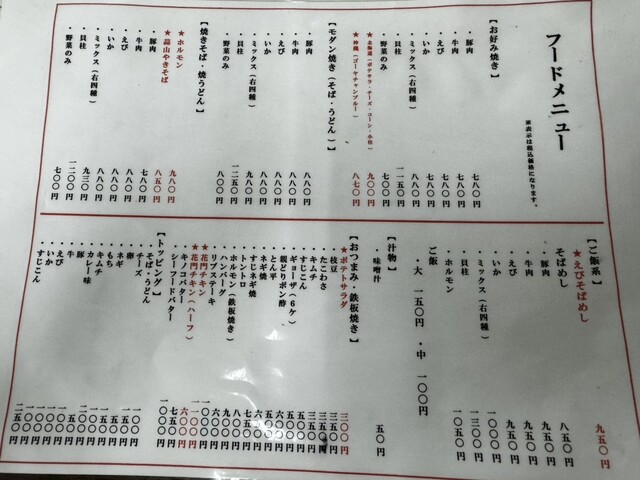 フードメニュー
※表示は税込価格になります。
【お好み焼き】
・豚肉 七八〇円
・牛肉 七八〇円
・えび 七八〇円
・いか 七八〇円
・貝柱 八八〇円
・ミックス（右四種） 一一五〇円
・野菜のみ 七〇〇円
★北海道（ポテサラ・チーズ・コーン・小柱） 九〇〇円
★沖縄（ゴーヤチャンプルー） 八七〇円
【モダン焼き（そば・うどん）】
・豚肉 八八〇円
・牛肉 八八〇円
・えび 八八〇円
・いか 八八〇円
・貝柱 九八〇円
・ミックス（右四種） 一二五〇円
・野菜のみ 八〇〇円
【焼きそば・焼うどん】
★ホルモン 九八〇円
★蒜山やきそば 八五〇円
・豚肉 七八〇円
・牛肉 八八〇円
・えび 八八〇円
・いか 八八〇円
・貝柱 九三〇円
・ミックス（右四種） 一二〇〇円
・野菜のみ 七〇〇円
【ご飯系】
★えびそばめし 九五〇円
そばめし
・豚肉 八五〇円
・牛肉 九五〇円
・えび 九五〇円
・いか 九五〇円
・貝柱
・ミックス（右四種） 一三〇〇円
・ホルモン 一〇五〇円
ご飯
・大 一五〇円 ・中 一〇〇円
【汁物】
・味噌汁 五〇円
【おつまみ・鉄板焼き】
★ポテトサラダ 三〇〇円
・枝豆
・たこわさ
・キムチ
・すじこん
・ギョーザ（６ケ）
・親どりポン酢
・とん平
・ネギ焼
・すじネギ焼
・トントロ
・ホルモン（鉄板焼き）
・ハンバーグ
・リブステーキ
★花門チキン
★花門チキン（ハーフ） 六〇〇円
・キノコバター 七五〇円
・シーフードバター 一〇〇〇円
【トッピング】
・そば・うどん
・チーズ
・卵
・ネギ
・もち
・キムチ
・カレー味
・豚
・牛
・えび
・いか
・すじこん 二五〇円